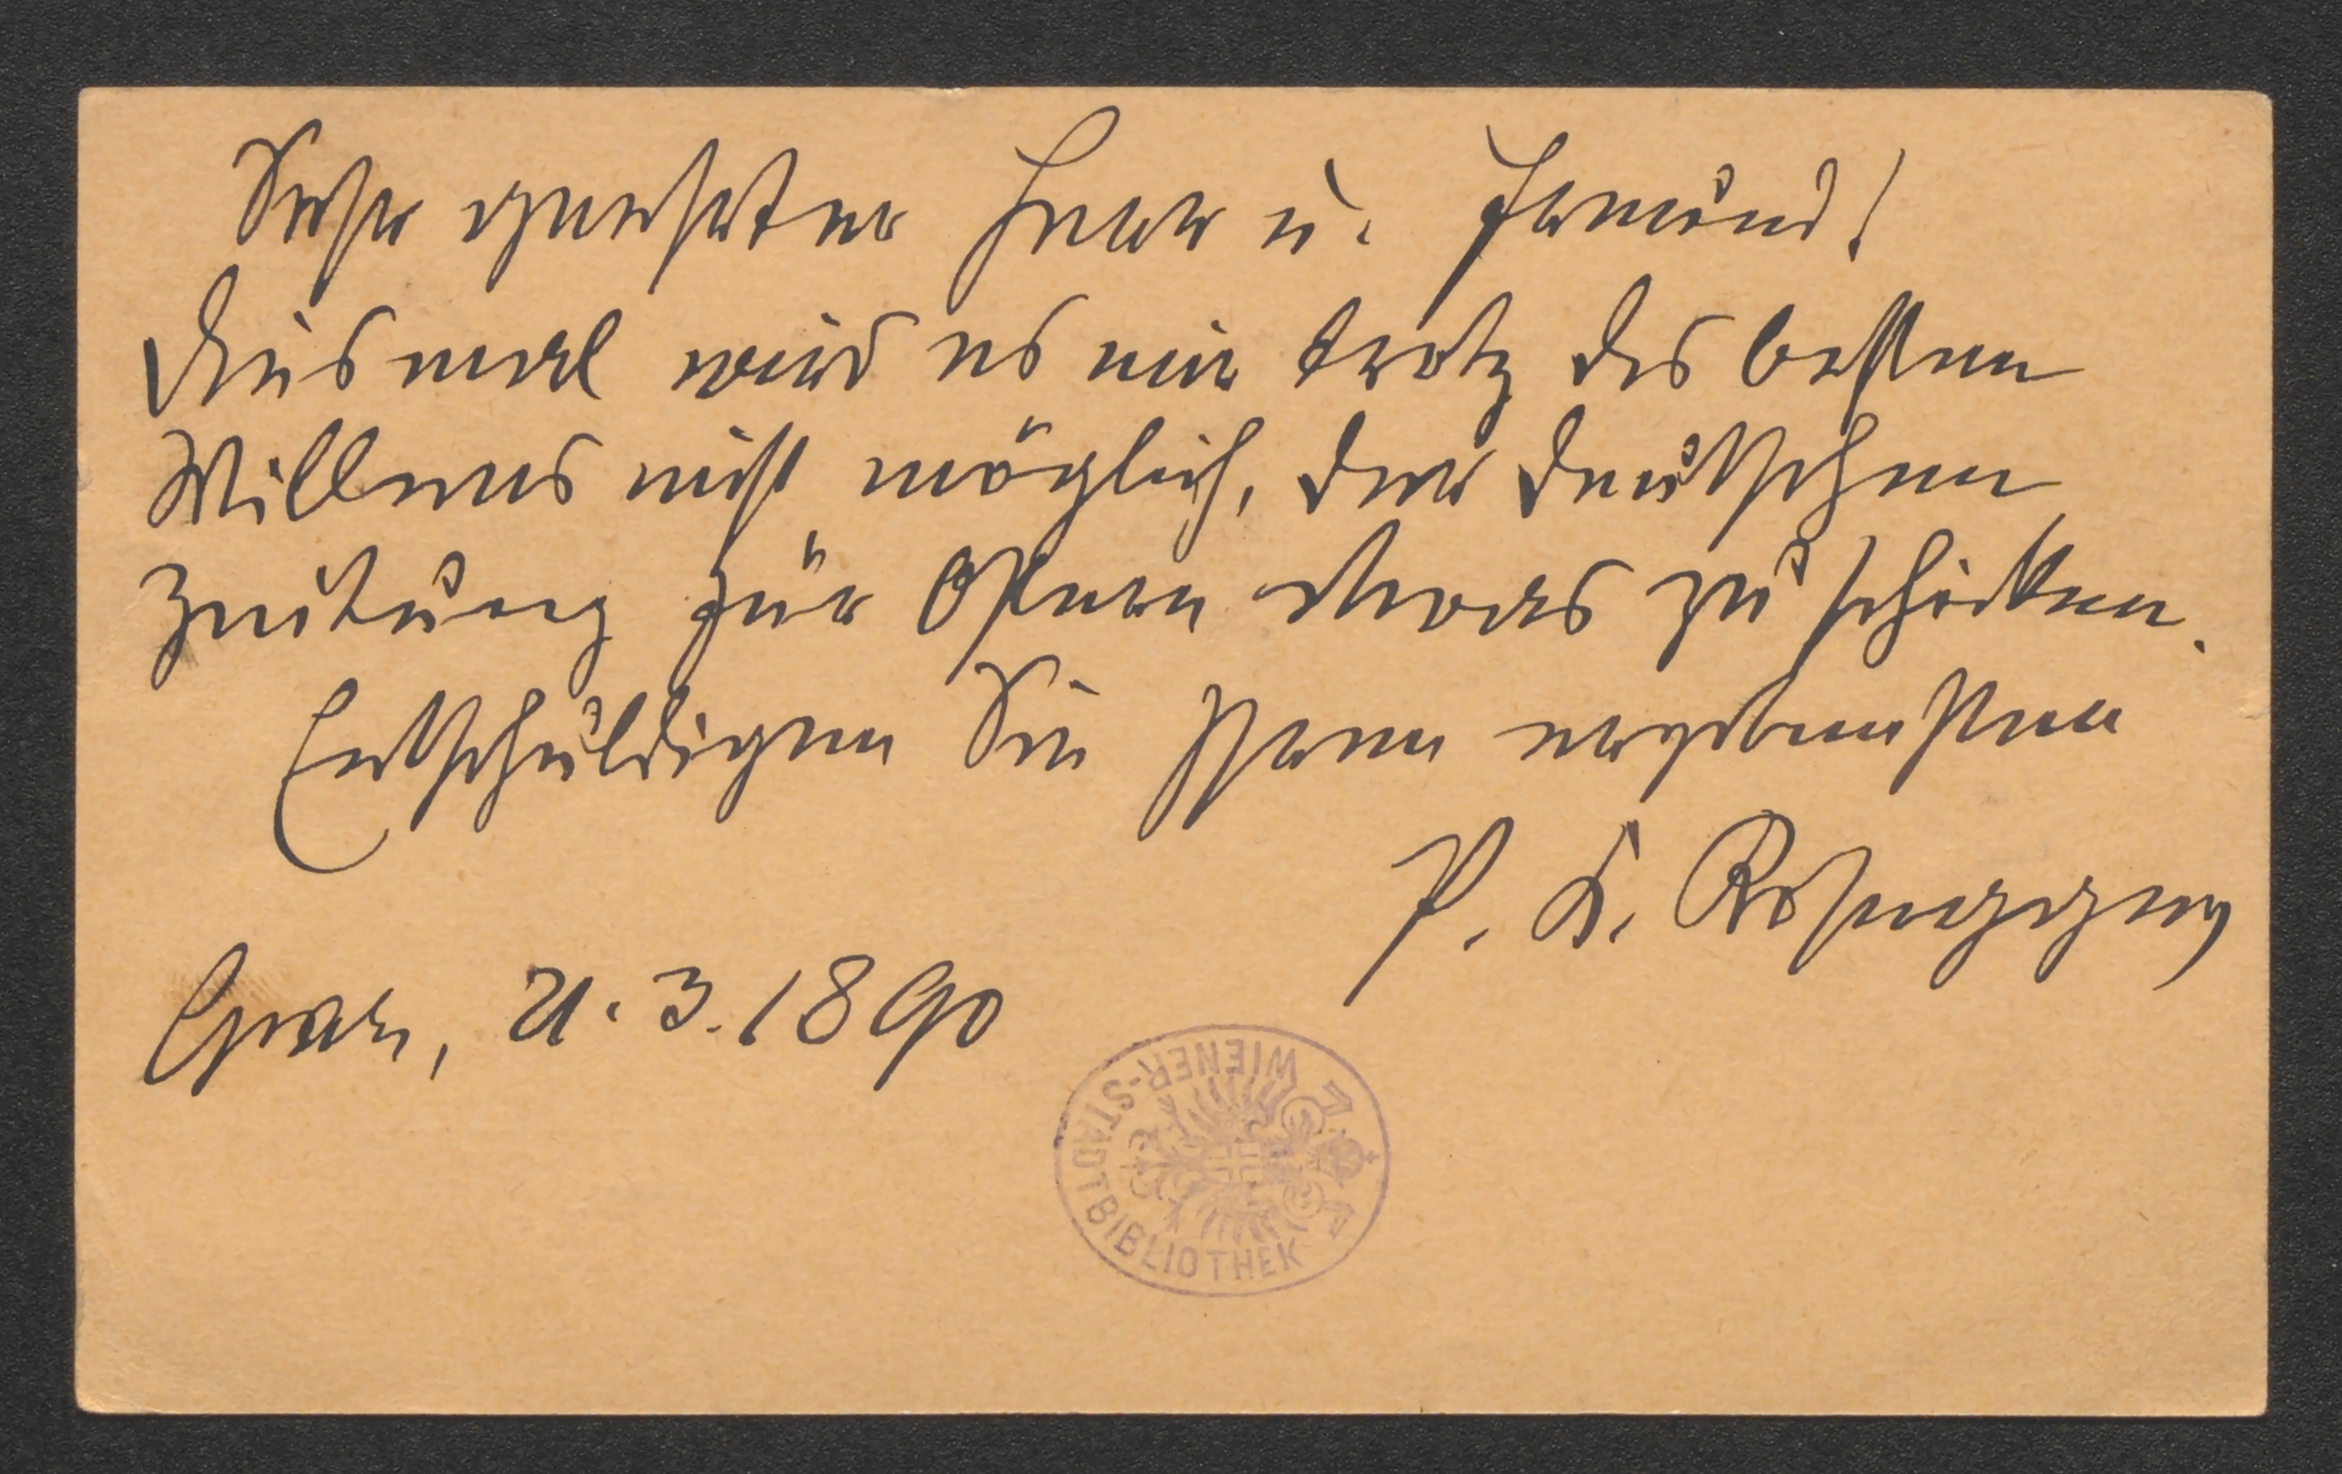 Sehr geehrter Herr u. Freund!
Diesmal wird es mir trotz des besten
Willens nicht möglich, der Deutschen
Zeitung für Ostern etwas zu schicken.
Entschuldigen Sie Ihren ergebensten
P. K. Rosegger
Graz, 21.3.1890
WIENER-STADTBIBLIOTHEK